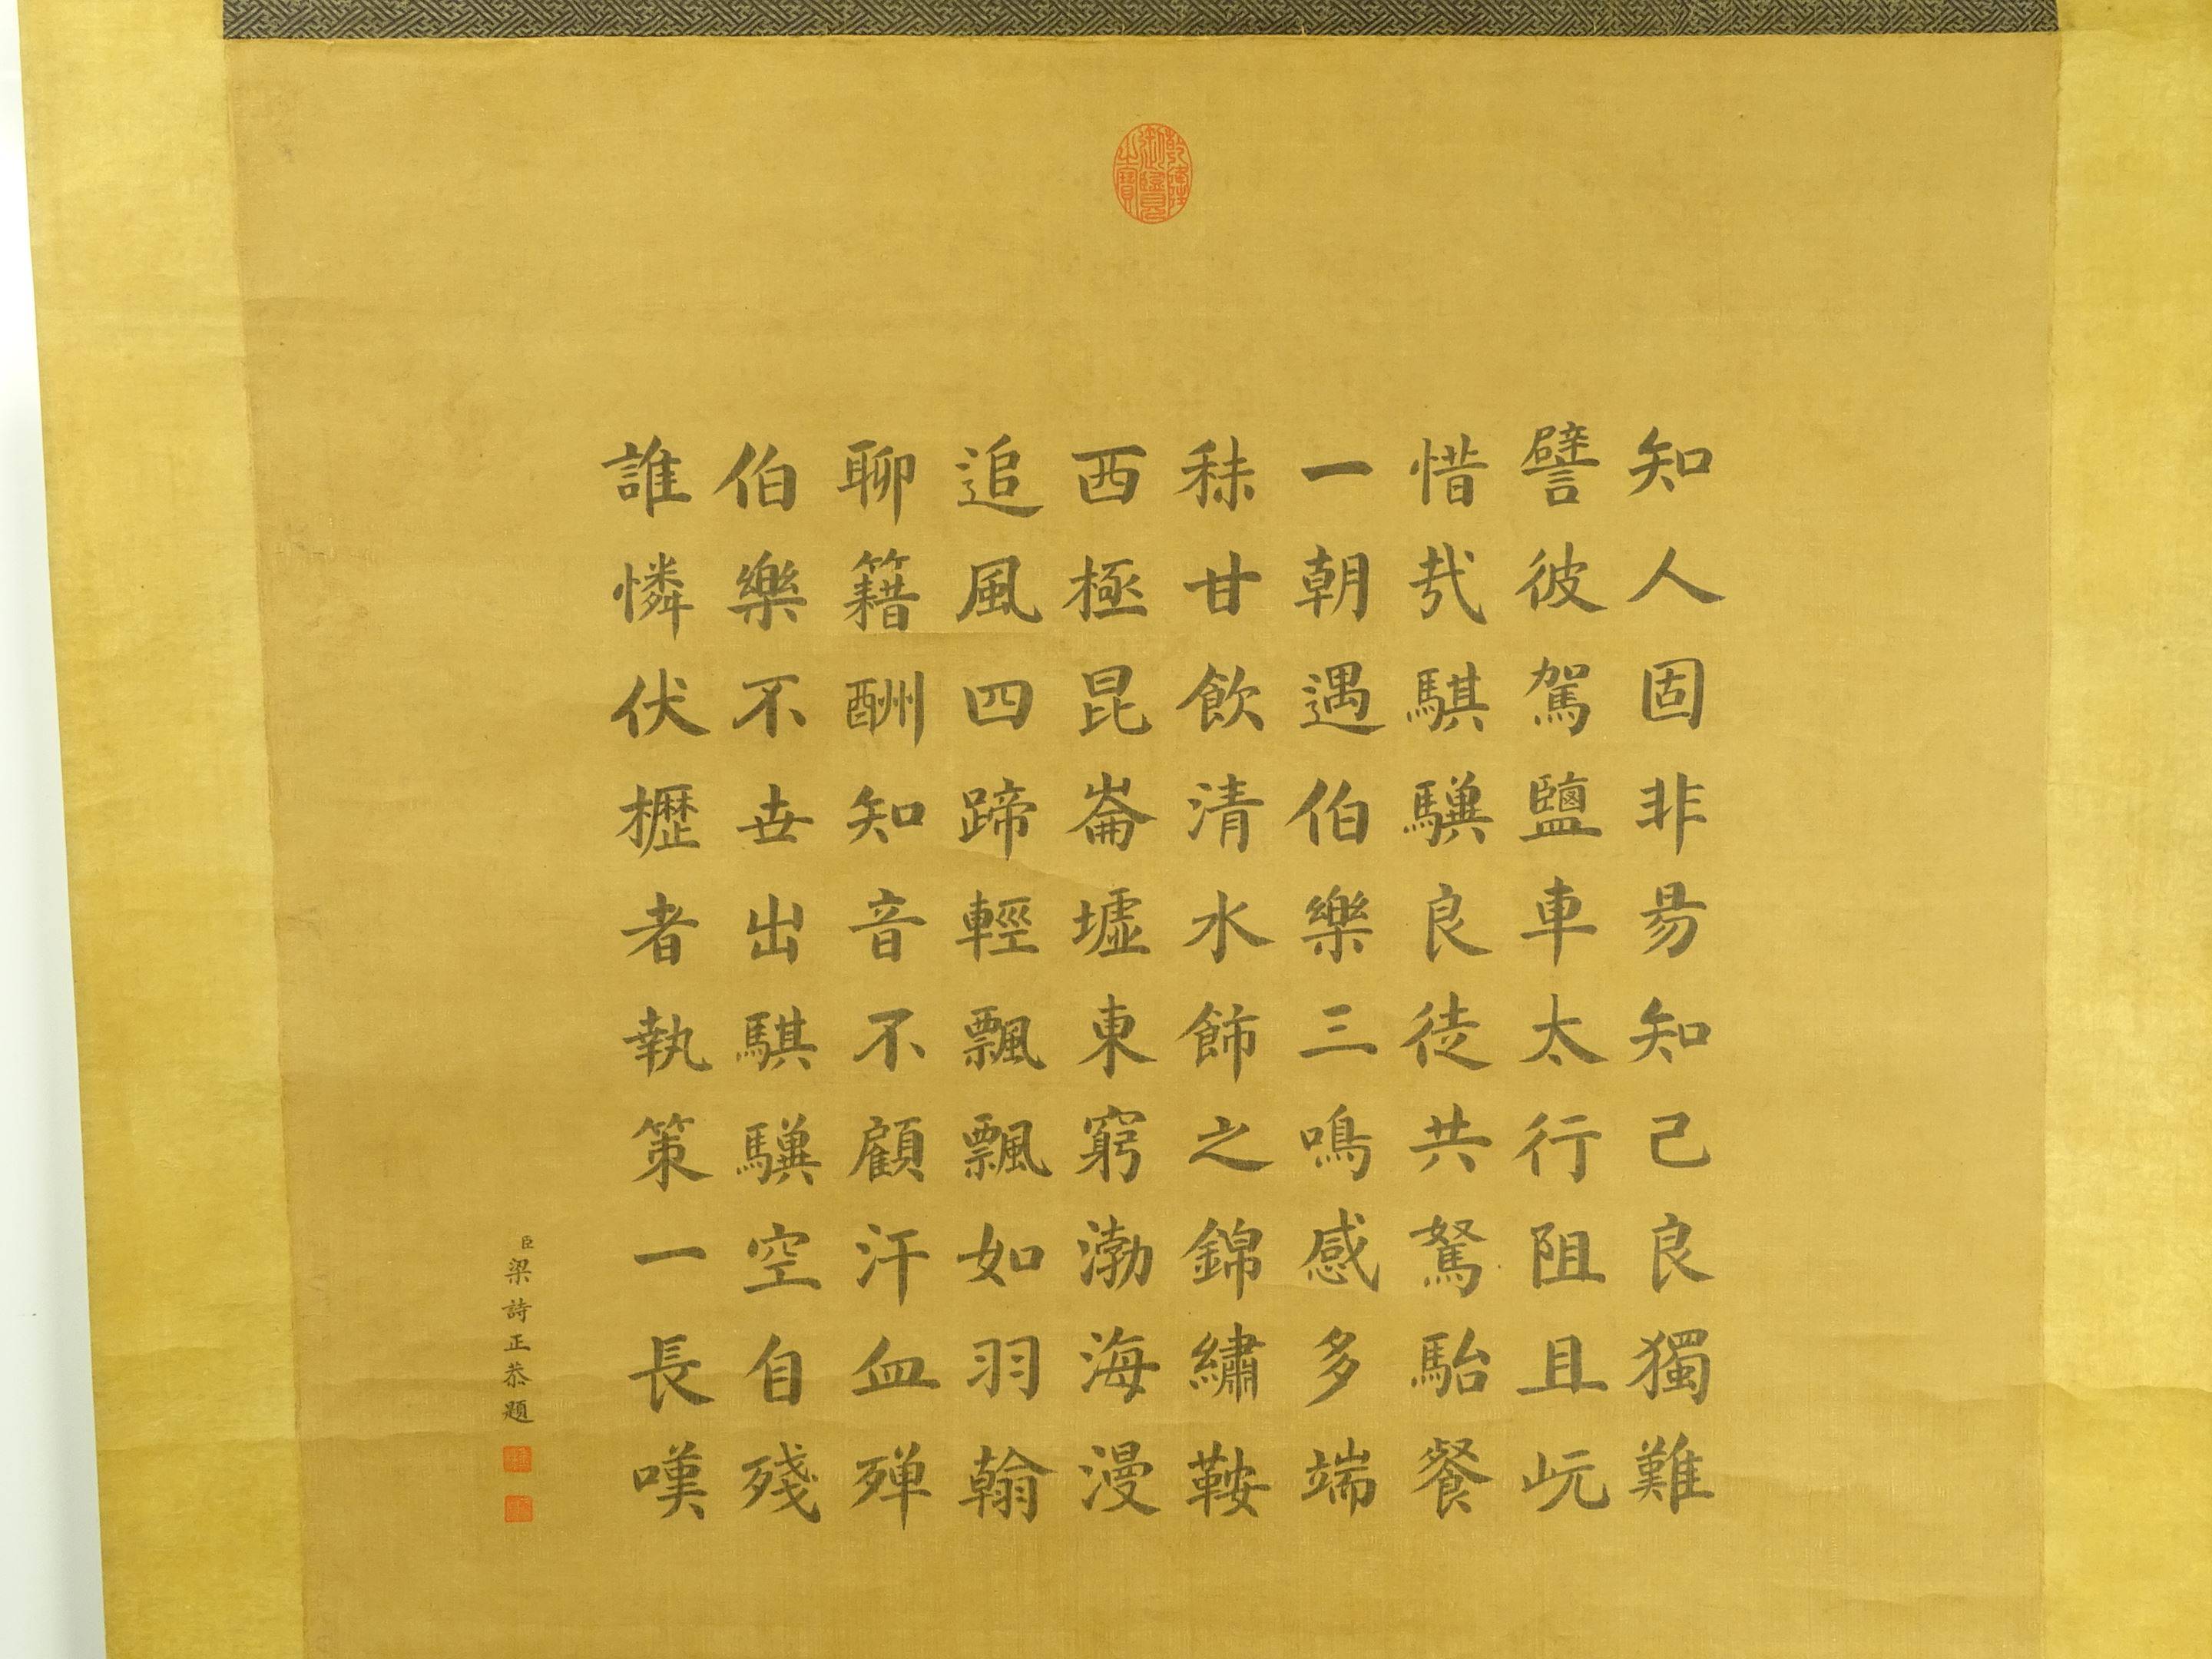 知人固非易知己良獨難
譬彼駕鹽車太行阻且岏
惜㦲騏驥良徒共駑駘餐
一朝遇伯樂三鳴感多端
秣甘飲清水飾之錦繡鞍
西極昆崙墟東窮渤海漫
追風四蹄輕飄飄如羽翰
聊籍酬知音不顧汗血殫
伯樂不世出騏驥空自殘
誰憐伏櫪者執策一長嘆
臣梁詩正恭題
乾隆御覽之寶